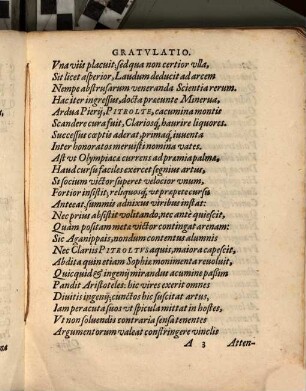 GRATVLATIO.
Vna viis placuit, sed qua non certior vlla,
Sit licet asperior, Laudum deducit ad arcem
Nempe abstrusarum veneranda Scientia rerum.
Hac iter ingressus, docta præeunte Minerua,
Ardua Pierij, PITROLTE, cacumina montis
Scandere cura fuit, Clariosq́; haurire liquores.
Successus cœptis aderat, primaq́; iuuenta
Inter honoratos meruisti nomina vates.
Ast vt Olympiaca currens ad præmia palma,
Haud cursu faciles exercet segnius artus,
Si socium victor superet velocior vnum,
Fortior insistit, reliquosq́; vt præpete cursu
Anteeat, summis adnixus viribus instat:
Nec prius absistit volitando, nec ante quiescit,
Quàm positam meta victor contingat arenam:
Sic Aganippais, nondum contentus alumnis
Nec Clariis PITROLTS aquis, maiora capescit,
Abdita quin etiam Sophiæ monimenta reuoluit,
Quicquid & ingenij mirandus acumine passim
Pandit Aristoteles: hic vires exerit omnes
Diuitis ingenij; cunctos hic suscitat artus,
Iam peracuta suos vt spicula mittat in hostes,
Vt non soluendis contraria sensa tenentes
Argumentorum valeat constringere vinclis
A 3 Atten-